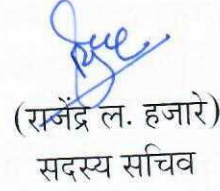 (राजेंद्र ल. हजारे)
सदस्य सचिव